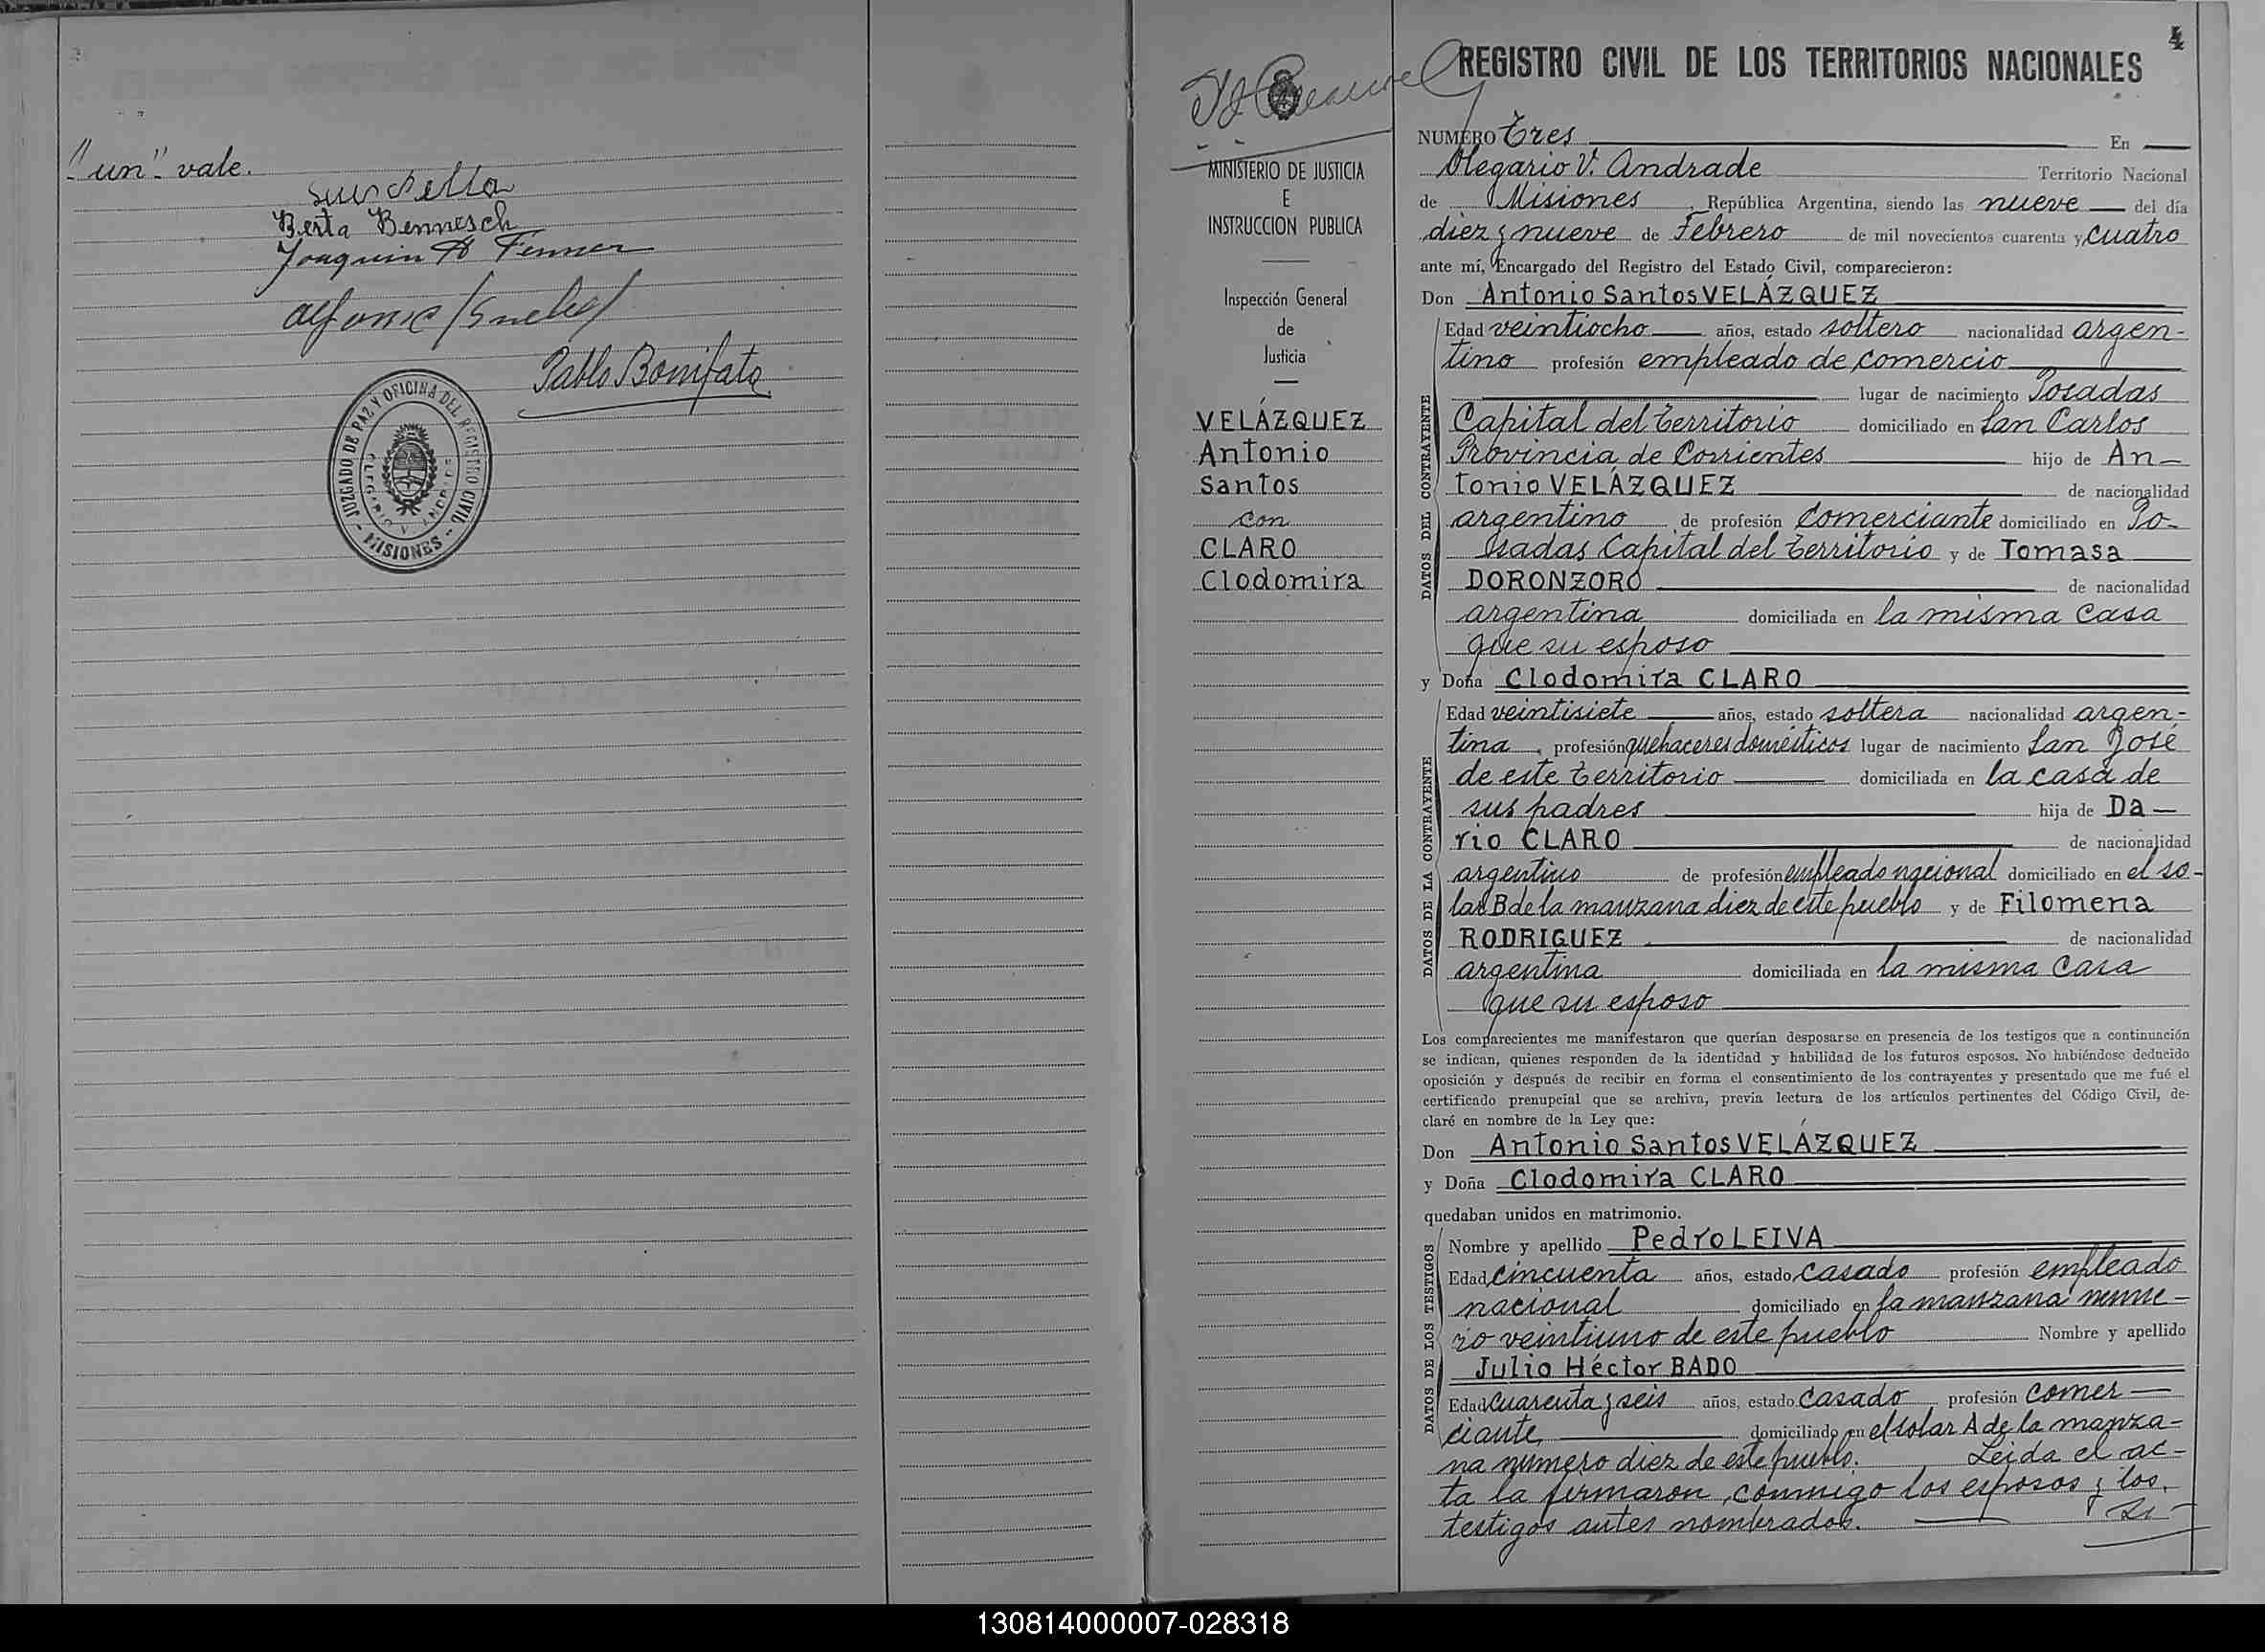 "un" vale.
Berta Bennesch
Joaquin A Fenner
Pablo Bonifato
JUZGADO DE PAZ Y OFICINA DEL REGISTRO CIVIL
OLEGARIO V. ANDRADE
- MISIONES -
4
REGISTRO CIVIL DE LOS TERRITORIOS NACIONALES
MINISTERIO DE JUSTICIA
E
INSTRUCCION PUBLICA
Inspección General
de
Justicia
VELÁZQUEZ
Antonio
Santos
con
CLARO
Clodomira
NUMERO Tres En
Olegario V. Andrade Territorio Nacional
de Misiones, República Argentina, siendo las nueve del día
diez y nueve de Febrero de mil novecientos cuarenta y cuatro
ante mí, Encargado del Registro del Estado Civil, comparecieron:
Don Antonio Santos VELÁZQUEZ
DATOS DEL CONTRAYENTE
Edad veintiocho años, estado soltero nacionalidad argen-
tino profesión empleado de comercio
lugar de nacimiento Posadas
Capital del Territorio domiciliado en San Carlos
Provincia de Corrientes hijo de An-
tonio VELÁZQUEZ de nacionalidad
argentino de profesión comerciante domiciliado en Po-
sadas Capital del Territorio y de Tomasa
DORONZORO de nacionalidad
argentina domiciliada en la misma casa
que su esposo
y Doña Clodomira CLARO
DATOS DE LA CONTRAYENTE
Edad veintisiete años, estado soltera nacionalidad argen-
tina, profesión quehaceres domésticos lugar de nacimiento San José
de este Territorio domiciliada en la casa de
sus padres hija de Da-
rio CLARO de nacionalidad
argentino de profesión empleado nacional domiciliado en el so-
lar B de la manzana diez de este pueblo y de Filomena
RODRIGUEZ de nacionalidad
argentina domiciliada en la misma casa
que su esposo
Los comparecientes me manifestaron que querían desposarse en presencia de los testigos que a continuación
se indican, quienes responden de la identidad y habilidad de los futuros esposos. No habiéndose deducido
oposición y después de recibir en forma el consentimiento de los contrayentes y presentado que me fué el
certificado prenupcial que se archiva, previa lectura de los artículos pertinentes del Código Civil, de-
claré en nombre de la Ley que:
Don Antonio Santos VELÁZQUEZ
y Doña Clodomira CLARO
quedaban unidos en matrimonio.
DATOS DE LOS TESTIGOS
Nombre y apellido Pedro LEIVA
Edad cincuenta años, estado casado profesión empleado
nacional domiciliado en la manzana nume-
ro veintiuno de este pueblo Nombre y apellido
Julio Héctor BADO
Edad cuarenta y seis años, estado casado profesión comer-
ciante, domiciliado en el solar A de la manza-
na numero diez de este pueblo. Leida el ac-
ta la firmaron, conmigo los esposos y los
testigos antes nombrados.
130814000007-028318